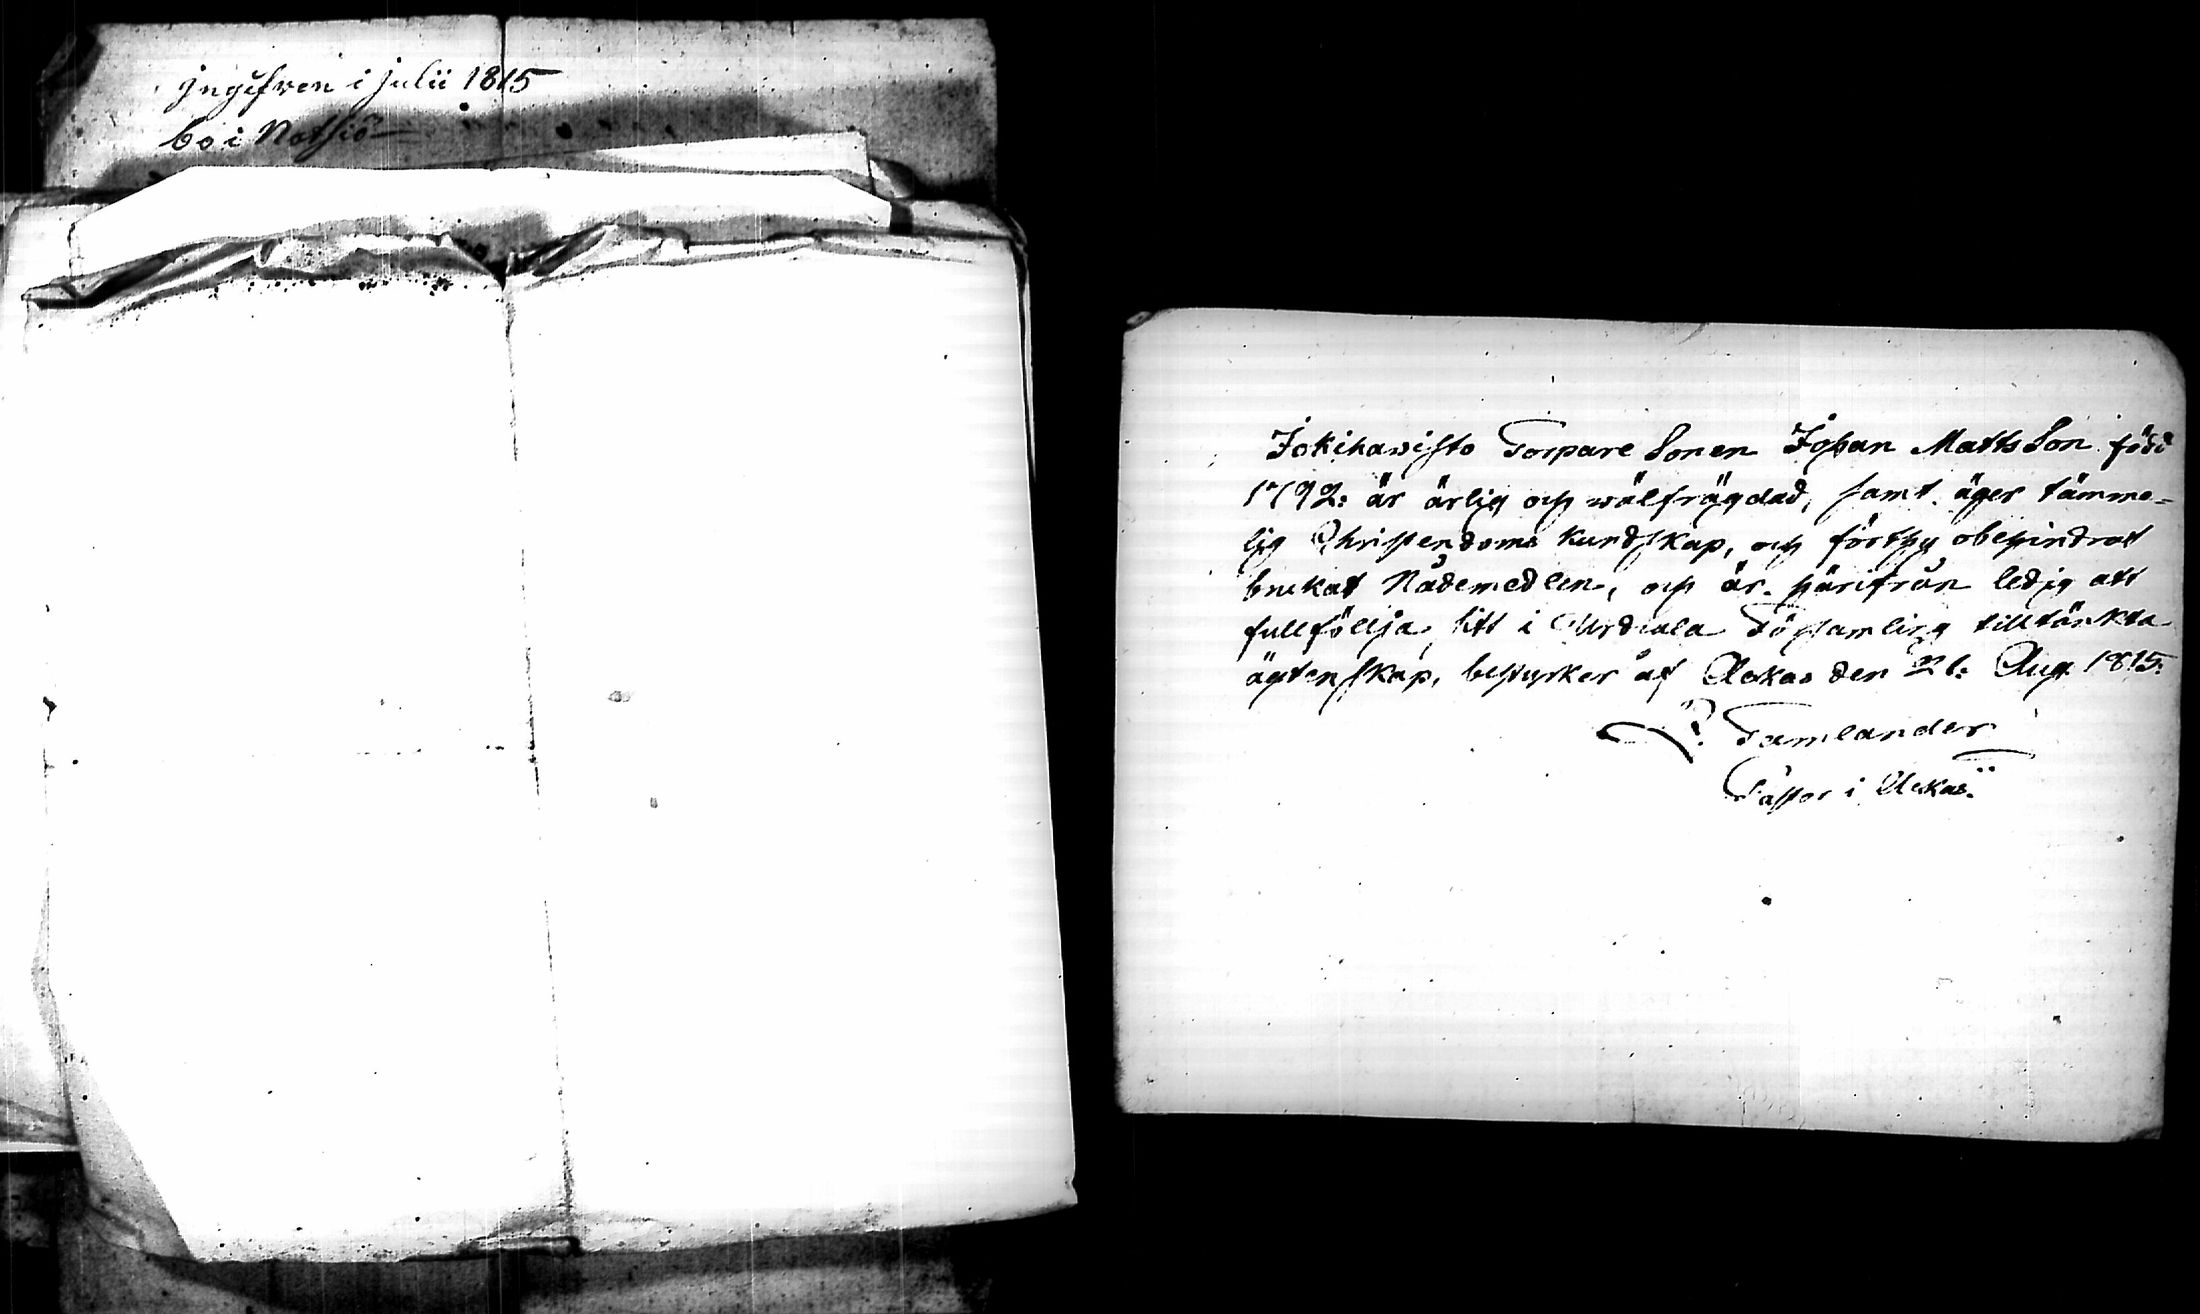 ingifven i Julii 1815
bo i Notsiö
Jokihavisto Torpare Sonen Johan Mattsson född
1792: är ärlig och wälfrägdad, samt äger tämme=
lig Christendoms kundskap, och förthy obehindrat
brukat Nådemedlen, och är härifrån ledig att
fullföllja sitt i Urdiala Församling tilltänkta
ägtenskap, bestyrker af Ackas den 21. Aug. 1815.
Tamlander
Pastor i Ackas.